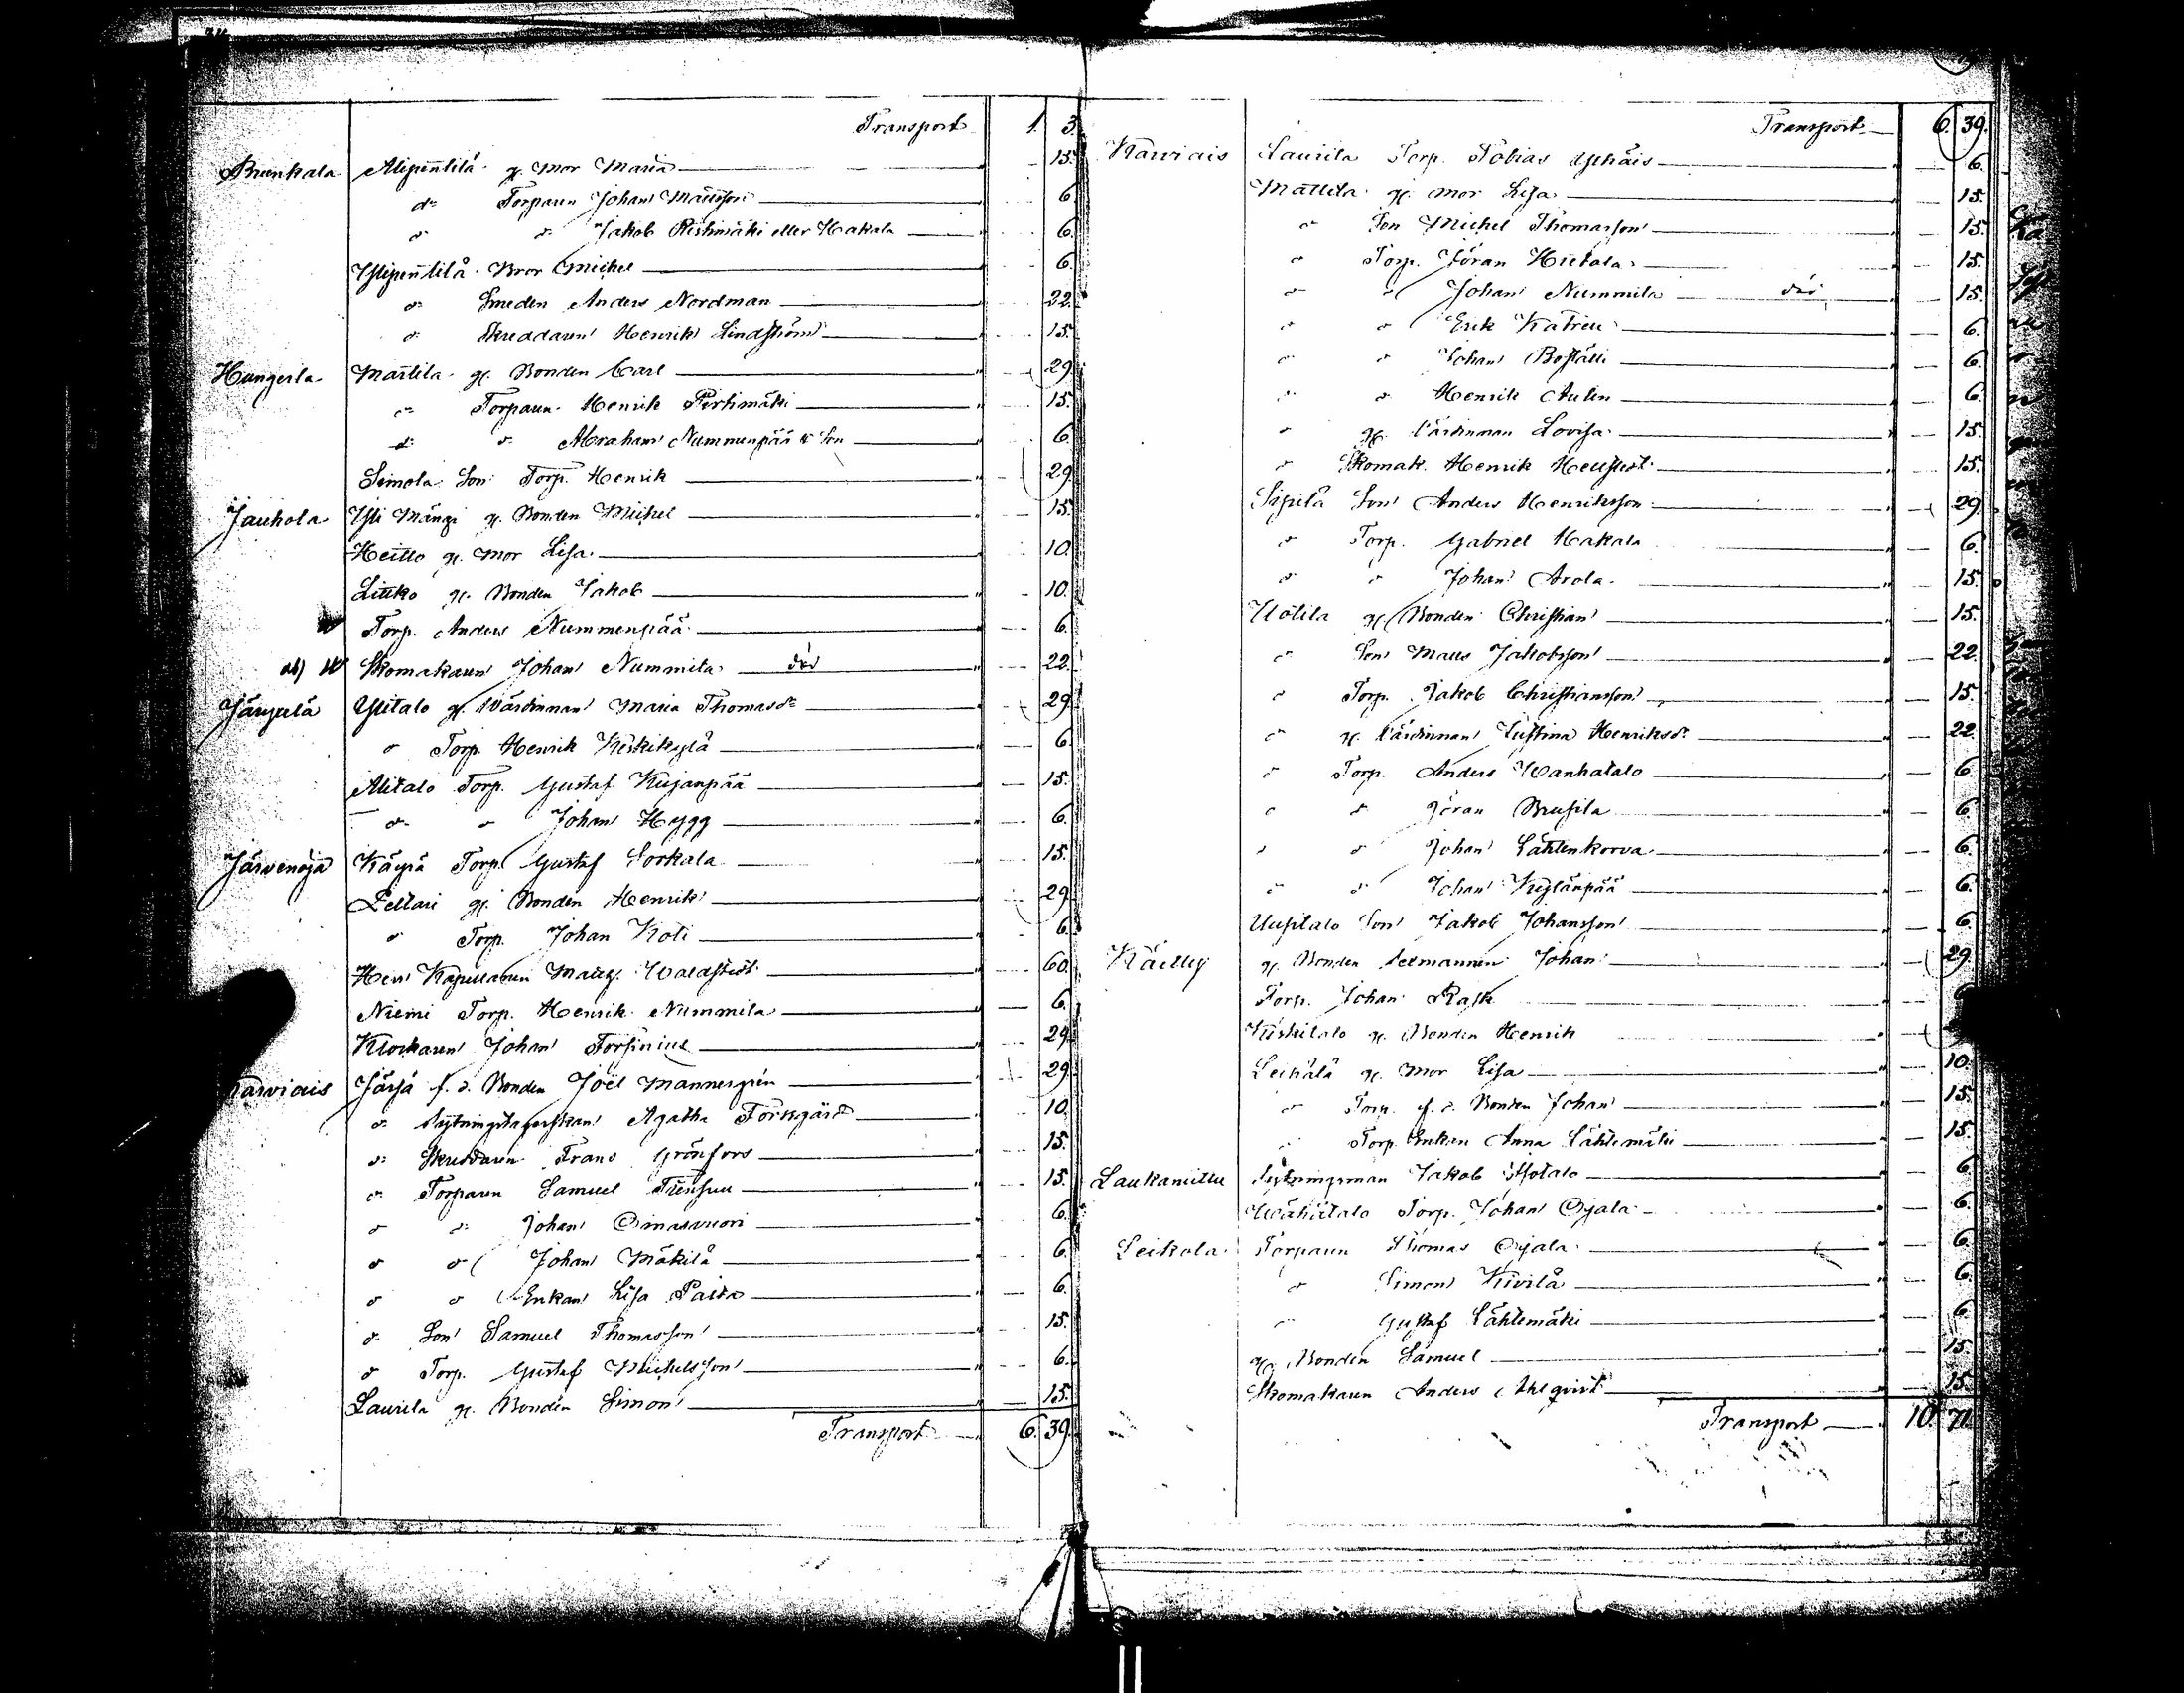 Transport 1. 3.
Prunkala Alipentilä g. mor Maria 15.
do Torparen Johan Mattsson 6.
do do Jakob Ristimäki eller Hakala 6.
Ylipentilä Bror Michel 6.
do Smeden Anders Nordman 22.
do Skreddaren Henrik Lindström 15.
Hungerla Marttila g. Bonden Carl 29.
do Torparen Henrik Perhimäki 15.
do do Abraham Nummenpää Son 6.
Simola Son Torp. Henrik 29.
Jauhola Yli Mängi g. Bonden Michel 15.
Heikko g. mor Lisa 10.
Liuko g. Bonden Jakob 10.
Torp. Anders Nummenpää 6.
Skomakaren Johan Nummila död 22.
Järypilä Ylitalo g. Wärdinnan Maria Thomasdr 29.
do Torp. Henrik Keskikylä 6.
Alitalo Torp. Gustaf Kujanpää 15.
do do Johan Hygg 6.
Järvenoja Käyrä Torp. Gustaf Sorkala 15.
Pettari g. Bonden Henrik 29.
do Torp. Johan Koti 6.
Herr Kapellanen Matts. Waldstedt 60.
Niemi Torp. Henrik Nummila 6.
Klockaren Johan Forsinius 29.
Karviais Järjä f. d. Bonden Joël Mannergrén 29.
do Agatha Forssgård 10.
do Skreddaren Frans Grönfors 15.
do Torparen Samuel Friipuu 15.
do do Johan Oinasvuori 6.
do do Johan Mäkilä 6.
do do Enkan Lisa Paita 6.
do Son Samuel Thomasson 15.
do Torp. Gustaf Michelsson 6.
Laurila g. Bonden Simon 15.
Transport 6. 39.
Transport 6. 39.
Karviais Laurila Torp. Tobias 6.
Mattila g. mor Lisa 15.
do Son Michel Thomasson 15.
do Torp. Jöran Hietala 15.
do do Johan Nummila död 15.
do do Erik Katren 6.
do do Johan 6.
do do Henrik Aulen 6.
do g. Värdinnan Lovisa 15.
do Skomak. Henrik 15.
Sipilä Son Anders Henriksson 29.
do Torp. Gabriel Hakala 6.
do do Johan Arola 15.
Uotila g. Bonden Christian 15.
do Son Matts Jakobsson 22.
do Torp. Jakob Christiansson 15.
do g. Värdinnan Justina Henriksdr 22.
do Torp. Anders Wanhatalo 6.
do do Jöran Brusila 6.
do do Johan Lähtenkorva 6.
do do Johan Kylänpää 6.
Uusitalo Son Jakob Johansson 6.
Käetty g. Bonden Johan 29.
Torp. Johan Rask
Keskitalo g. Bonden Henrik
Leikälä g. mor Lisa 10.
do Torp. f. d. Bonden Johan 15.
do Torp. Enkan Anna Lähtemäki 15.
Laukamittu Sytningsman Jakob Isotalo 6.
Wähätalo Torp. Johan Ojala 6.
Leikola Torparen Thomas Ojala 6.
do Simon Kivilä 6.
do Gustaf Lähtemäki 6.
g. Bonden Samuel 15.
Skomakaren Anders Ahlqvist 15.
Transport 10. 71.